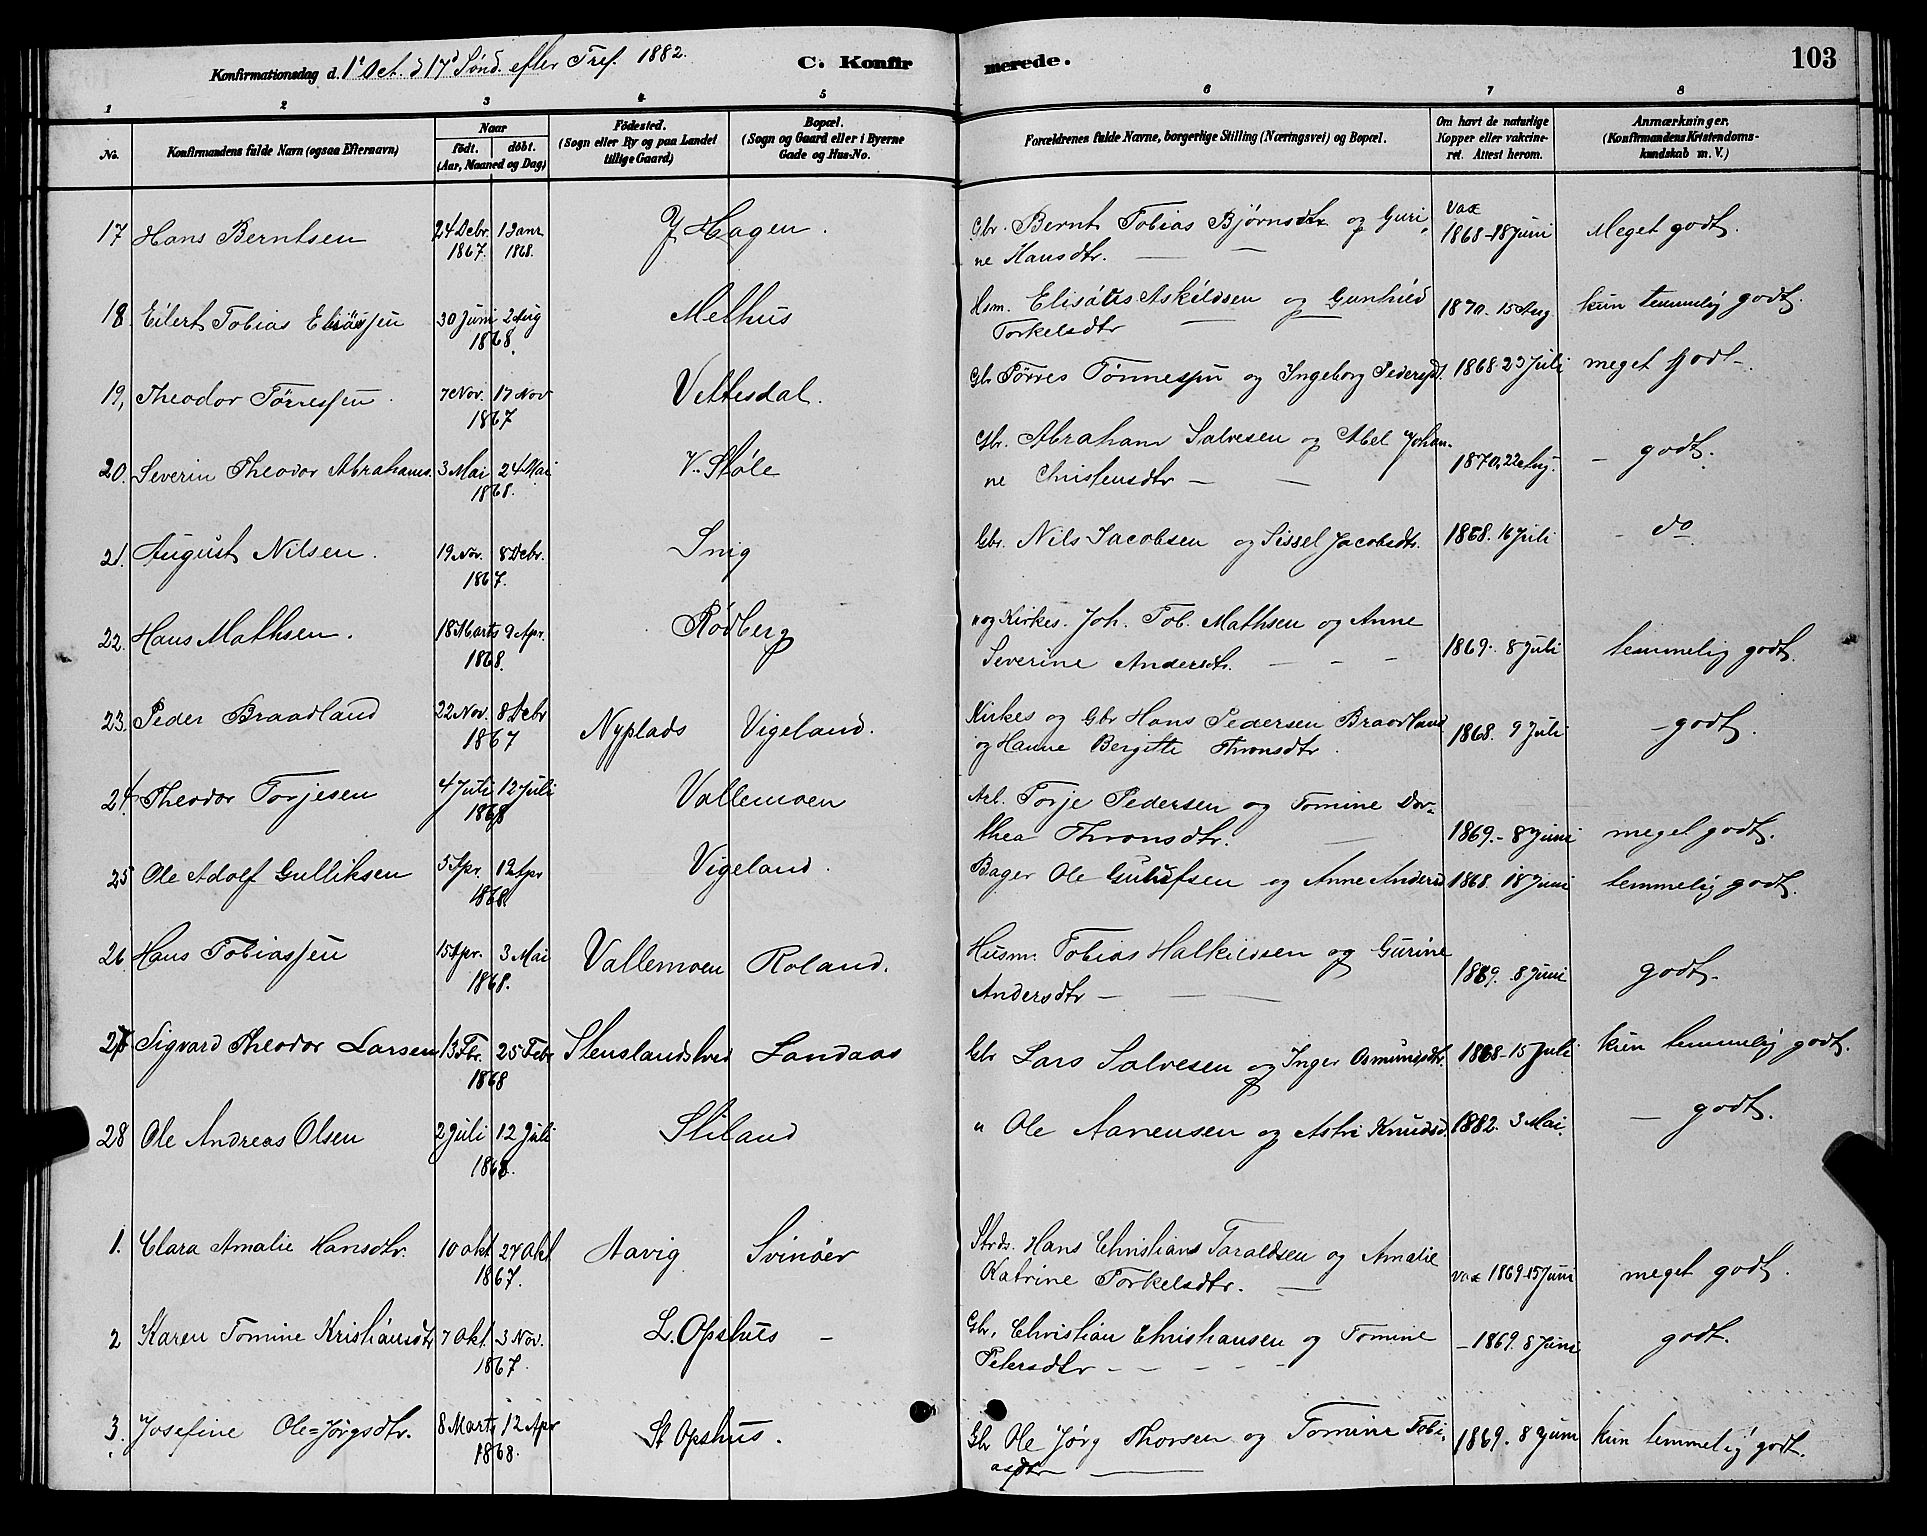 Konfirmationsdag d. 1e Oct. d 17d Sönd. efter Tref. 1882. C. Konfirmerede. 103
1 2 3 4 5 6 7 8
No. Konfirmandens fulde Navn (ogsaa Efternavn) Naar födt. döbt. (Aar, Maaned og Dag) Födested. (Sogn eller By og paa Landet tillige Gaard) Bopæl. (Sogn og Gaard eller i Byerne Gade og Hus-No. Forældrenes fulde Navne, borgerlige Stilling (Næringsvei) og Bopæl. Om havt de naturlige Kopper eller vakcineret. Attest herom. Anmærkninger, (Konfirmandens Kristendomskundskab m. V.)
17 Hans Berntsen 24 Debr. 1867. 1 Janr 1868. Y Hagen. Gbr. Bernt Tobias Bjørnsdtr og Gurine Hansdtr. — — vax 1868-18 Juni Meget godt.
18. Eilert Tobias Elisæssen 30 Juni 2 Aug 1868. Melhus Hsm. Elisæus Askildsen og Gunhild Torkelsdtr — — 1870. 15 Aug. kun temmelig godt.
19, Theodor Tørressen. 7 Nov. 17 Nov 1867 Vettesdal. Gbr Tørres Tønnessen og Ingeborg Pedersdt. 1868 23 Juli meget godt.
20. Severin Theodor Abrahams. 3 Mai 24 Mai 1868. V. Støle Gbr. Abraham Salvesen og Abel Johanne Christensdtr — — 1870, 22 Aug. — godt.
21. August Nilsen. 19 Nov. 8 Debr. 1867. Snig Gbr. Nils Jacobsen og Sissel Jacobsdtr. 1868. 16 Juli - do
22. Hans Mathsen. 18 Marts 9 Apr. 1868. Rødberg " og Kirkes. Joh. Tob. Mathsen og Anne Severine Andersdtr. — — — 1869. 8 Juli temmelig godt.
23. Peder Braadland 22 Nov. 8 Debr 1867 Nyplads Vigeland. Kirkes og Gbr Hans Pedersen Braadland og Hanne Bergitte Thronsdtr. 1868. 9 Juli - godt.
24. Theodor Torjesen 4 Juli 12 Juli 1868 Vallemoen Arb. Torje Pedersen og Tomine Dorthea Thronsdtr. — 1869. - 8 Juni meget godt.
25 Ole Adolf Gulliksen 5 Apr. 12 Apr 1868 Vigeland. Bager Ole Gulufsen og Anne Andersd 1868. 18 Juni temmelig godt.
26. Hans Tobiassen 15 Apr. 3 Mai 1868. Vallemoen Roland. Husm. Tobias Halkildsen og Gurine Andersdtr — — — 1869. 8 Juni godt.
27 Sigvard Theodor Larsen 13 Fbr. 25 Febr 1868 Stenslandshed Landaas Gbr Lars Salvesen og Inger Osmundsdtr. 1868-15 Juli kun temmelig godt.
28 Ole Andreas Olsen 2 Juli 12 Juli 1868. Stiland " Ole Aanensen og Astri Knudsd. 1882. 3 Mai. — godt.
1. Clara Amalie Hansdtr. 10 Okt 27 Okt 1867. Aavig Svinöer Strds. Hans Christians Taraldsen og Amalie Katrine Torkelsdtr. — vax 1869-15 Juni meget godt.
2 Karen Tomine Kristiansdtr 7 Okt 3 Nov. 1867. L. Opshus — Gbr. Christian Christiansen og Tomine Petersdtr — — — — — - 1869. 8 Juni godt.
3. Josefine Ole=Jørgsdtr. 8 Marts 12 Apr 1868. St Opshus. Gbr Ole Jørg Thorsen og Tomine Tobiasdtr — 1869. 8 Juni kun temmelig godt.